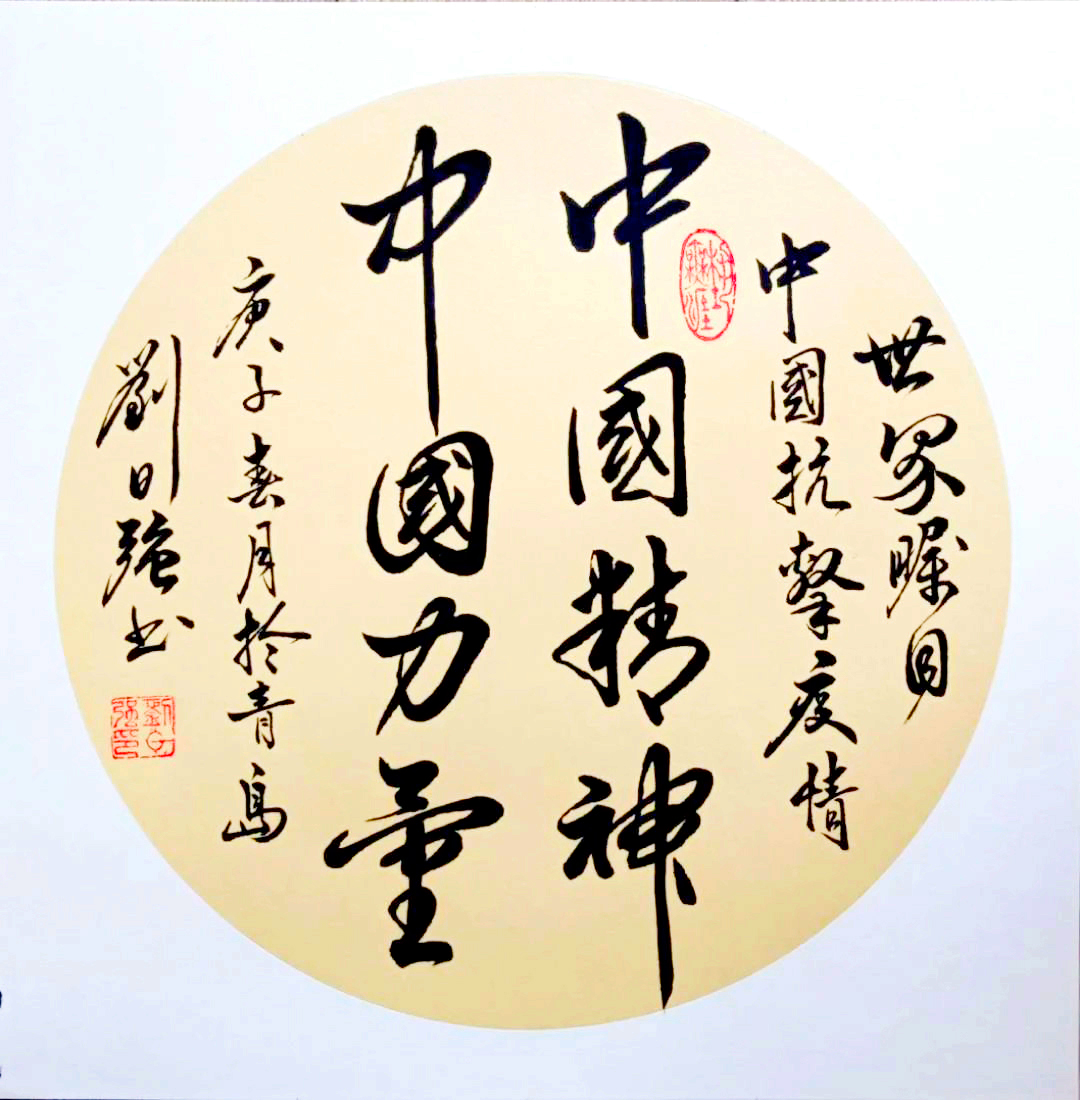 世界瞩目
中國抗擊疫情
中國精神
中國力量
庚子春月於青島
劉日強书